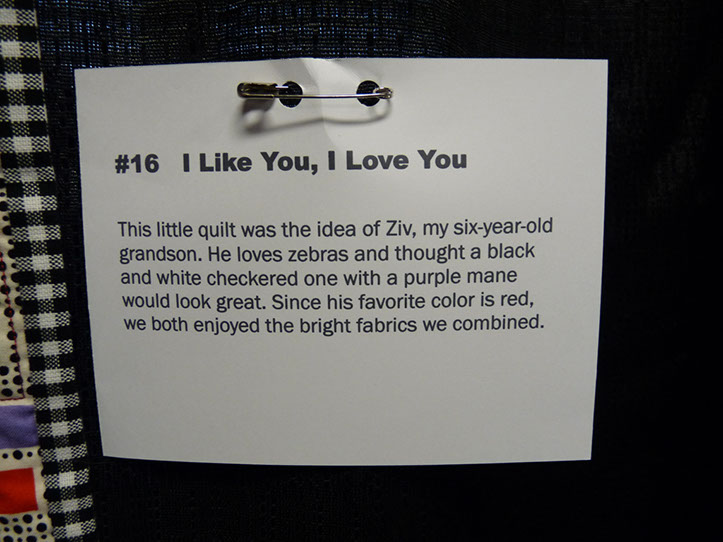 #16 I Like You, I Love You
This little quilt was the idea of Ziv, my six-year-old
grandson. He loves zebras and thought a black
and white checkered one with a purple mane
would look great. Since his favorite color is red,
we both enjoyed the bright fabrics we combined.